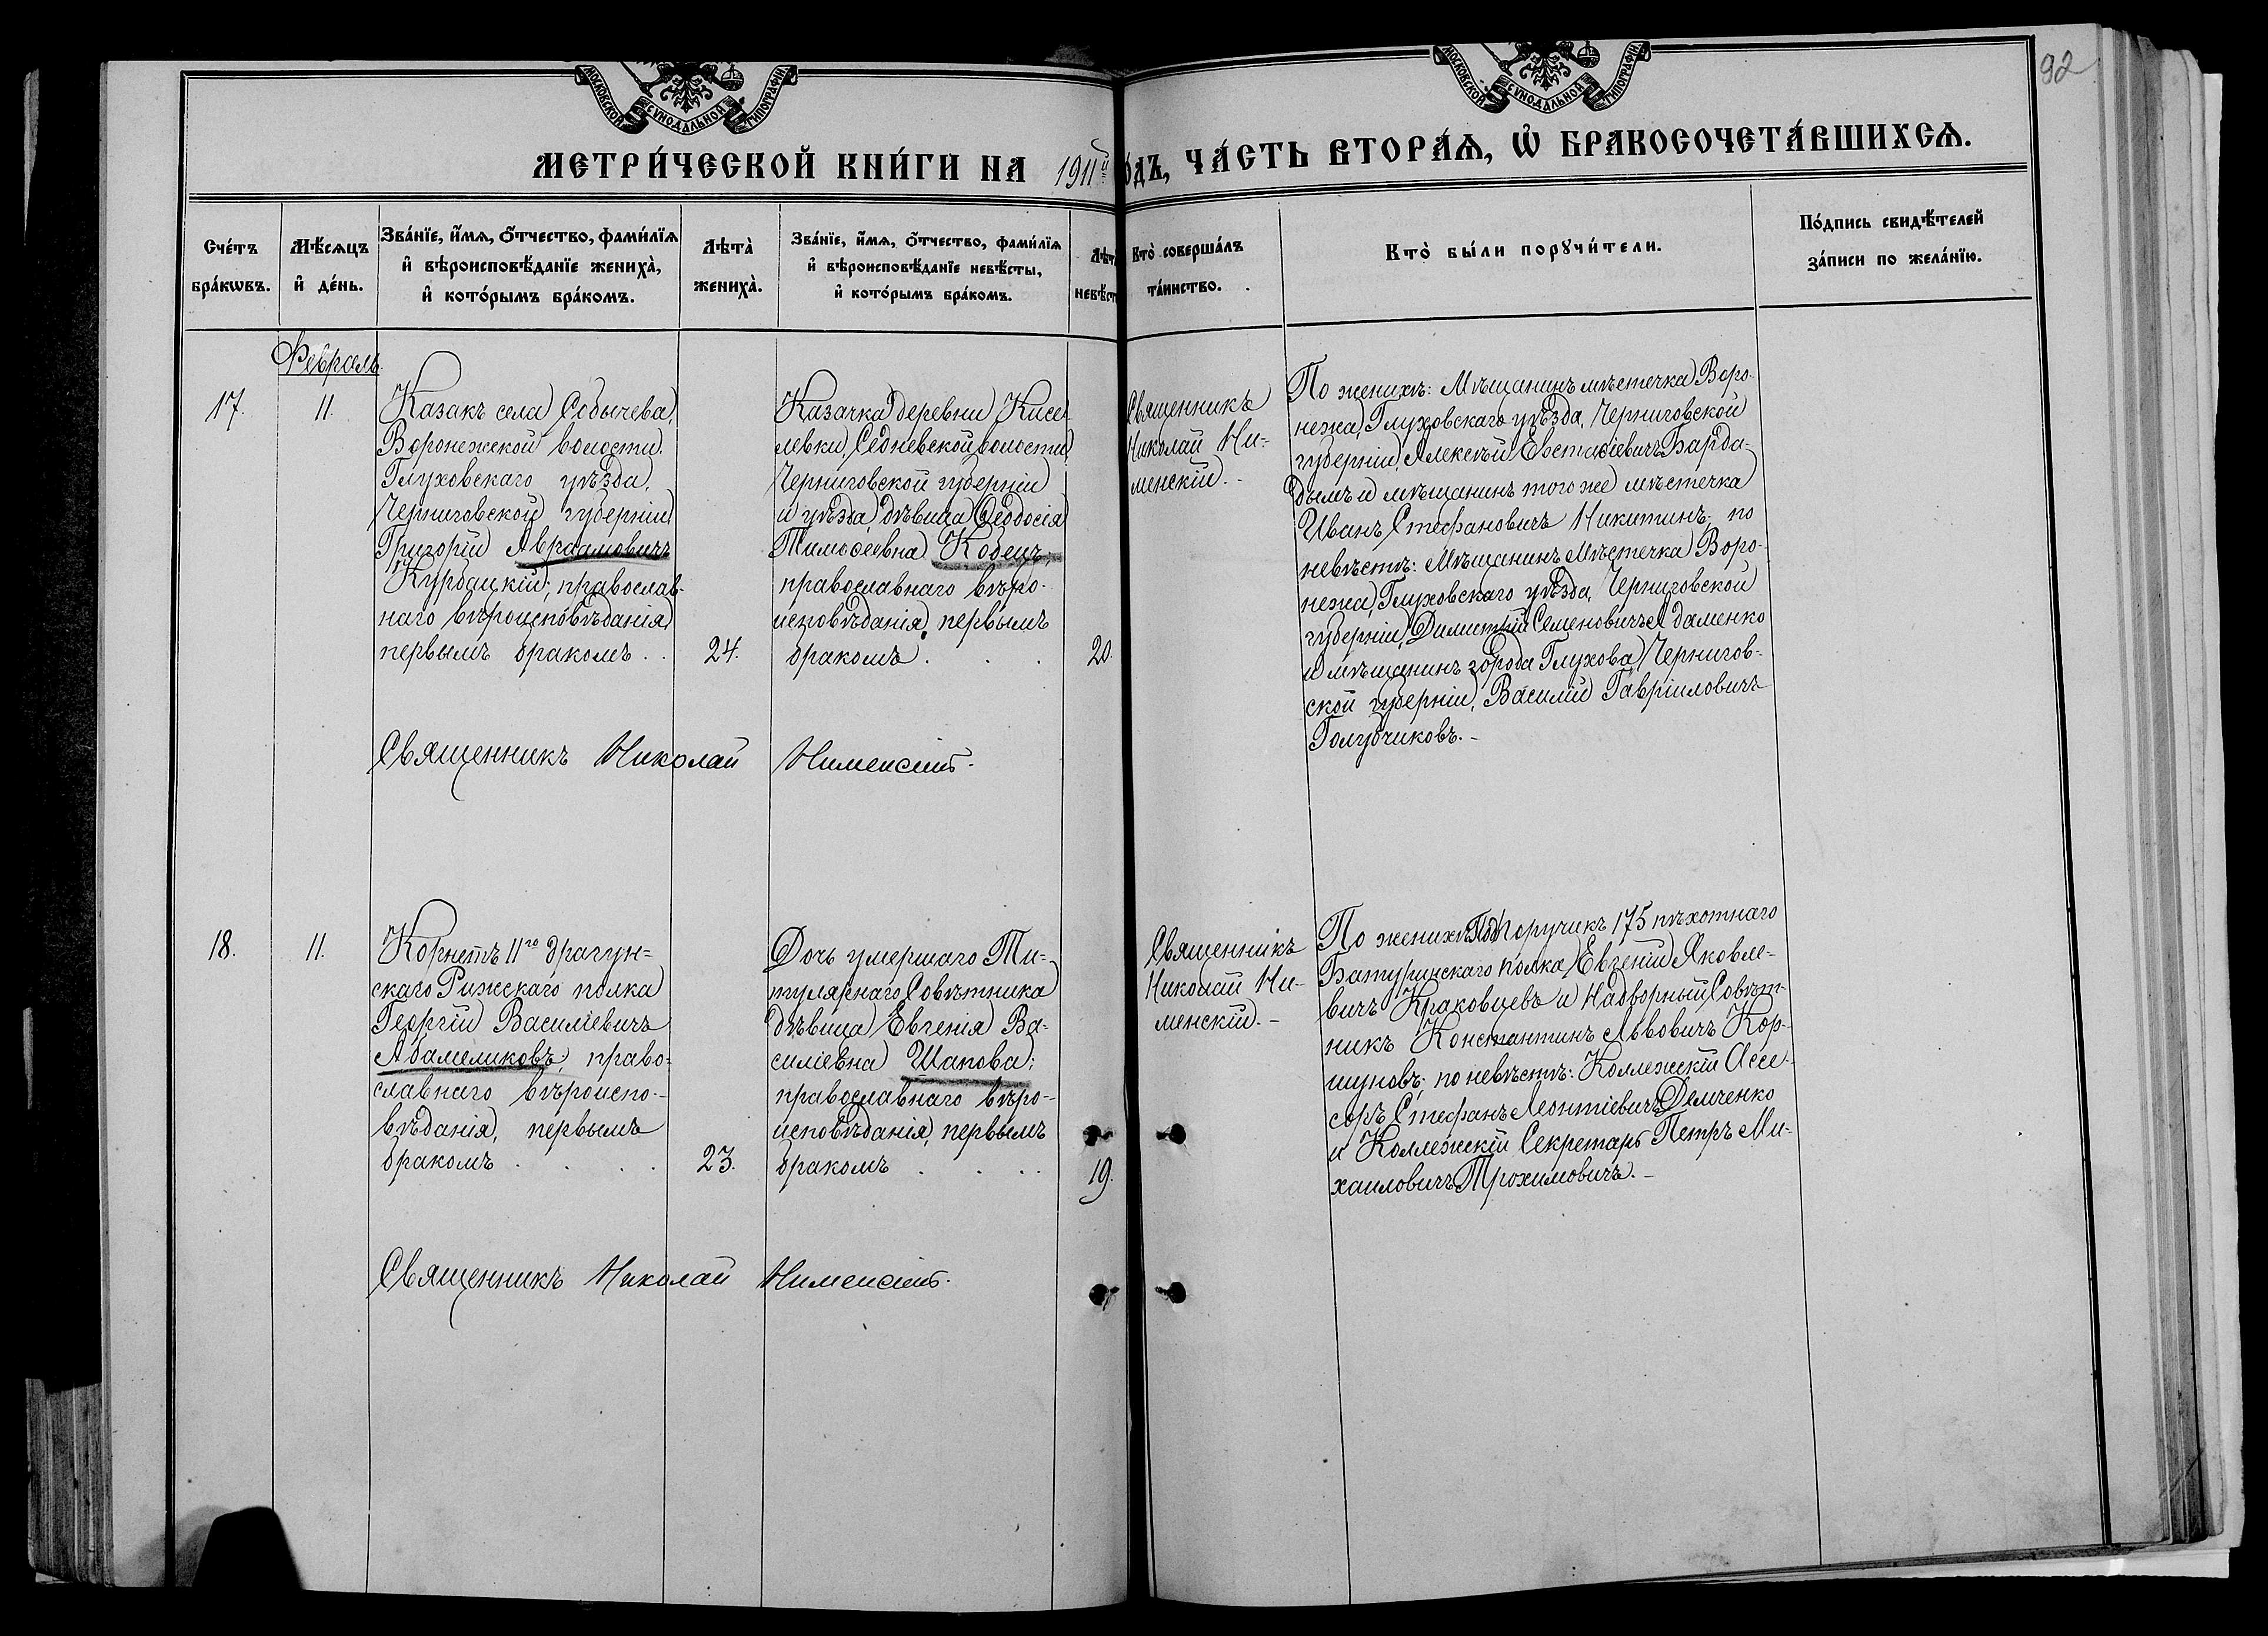 92
МОСКОВСКОЙ СУНОДАЛЬНОЙ ТИПОГРАФІИ
МОСКОВСКОЙ СУНОДАЛЬНОЙ ТИПОГРАФІИ
МЕТРИ́ЧЕСКОЙ КНИ́ГИ НА 1911й го́дъ, ЧА́СТЬ ВТОРА́Ѧ, Ѡ҆ БРАКОСОЧЕТА́ВШИХСѦ.
Сче́тъ
бра́кѡвъ.
Мѣ́сѧцъ
и҆ де́нь.
Зва́нїе, и҆́мѧ, ѻ҆́тчество, фами́лїѧ
и҆ вѣроисповѣ́данїе жениха̀,
и҆ кото́рымъ бра́комъ.
Лѣта̀
жениха̀.
Зва́нїе, и҆́мѧ, ѻ҆́тчество, фами́лїѧ
и҆ вѣроисповѣ́данїе невѣ́сты,
и҆ кото́рымъ бра́комъ.
Лѣта
невѣст
Кто̀ соверша́лъ
та́инство.
Кто̀ бы́ли порꙋчи́тели.
По́дпись свидѣ́телей
за́писи по жела́нїю.
Февраль.
17.
11.
Казакъ села Собычева,
Воронежской волости
Глуховскаго уѣзда,
Черниговской губерніи
Григорій Авраамовичъ
Курбацкій; православ-
наго вѣроисповѣданія,
первымъ бракомъ . .
24.
Казачка деревни Кисе
левки, Седневской волости
Черниговской губерніи
и уѣзда дѣвица Ѳеодосія
Тимоѳеевна Кобецъ;
православнаго вѣро-
исповѣданія, первымъ
бракомъ . . .
20.
Священникъ
Николай Ни-
менскій. -
По женихѣ: Мѣщанинъ мѣстечка Воро-
нежа, Глуховскаго уѣзда, Черниговской
губерніи, Алексѣй Евстаѳіевичъ Барда-
дымъ и мѣщанинъ того же мѣстечка
Иванъ Стефановичъ Никитинъ; по
невѣстѣ: Мѣщанинъ Мѣстечка Воро-
нежа, Глуховскаго уѣзда, Черниговской
губерніи, Димитрій Семеновичъ Адаменко
и мѣщанинъ города Глухова Чернигов-
ской губерніи, Василій Гавріиловичъ
Голубчиковъ. -
Священникъ Николай Нименскій.
18.
11.
Корнетъ 11го драгун=
скаго Рижскаго полка
Георгій Василіевичъ
Абамеликовъ; право=
славнаго вѣроиспо-
вѣданія, первымъ
бракомъ . . . .
23.
Дочь умершаго Ти-
тулярнаго Совѣтника
дѣвица Евгенія Ва-
силіевна Шапова;
православнаго вѣро-
исповѣданія, первымъ
бракомъ . . . .
19.
Священникъ
Николай Ни-
менскій. -
По женихѣ: Подпоручикъ 175 пѣхотнаго
Батуринскаго полка Евгеній Яковле-
вичъ Краковцевъ и Надворный Совѣт-
никъ Константинъ Львовичъ Кор-
шуновъ; по невѣстѣ: Коллежскій Ассе-
соръ Стефанъ Леонтіевичъ Демченко
и Коллежскій Секретарь Петръ Ми-
хаиловичъ Трохимовичъ. -
Священникъ Николай Нименскій.